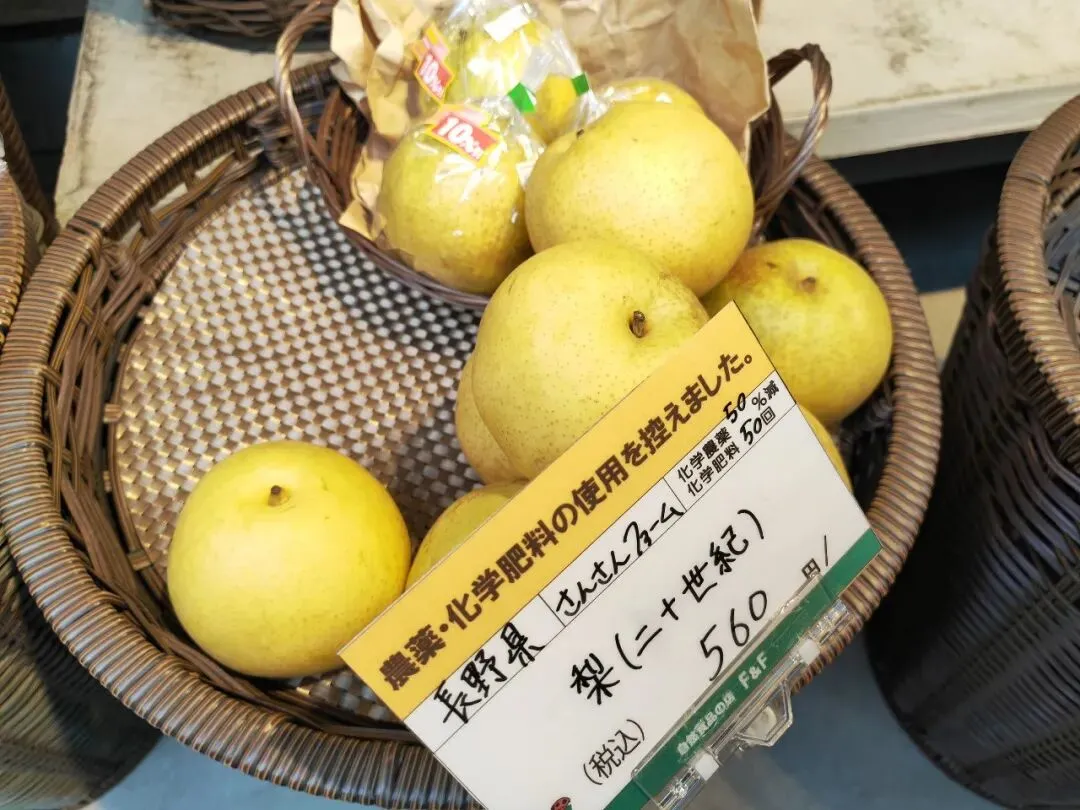 10%
10%
農薬・化学肥料の使用を控えました。
長野県
さんさんファーム
化学農薬 50 %減
化学肥料 50回
梨(二十世紀)
560 円/
(税込)
自然食品の店 F&F